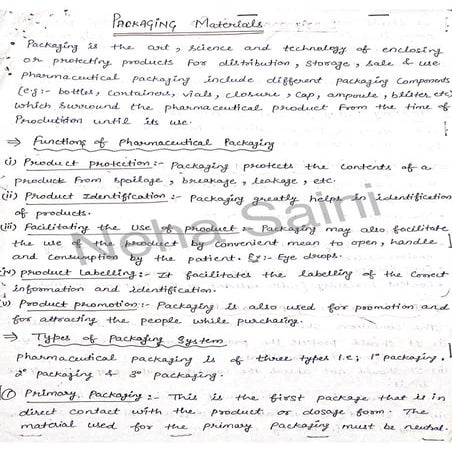 PACKAGING Materials
• Packaging is the art, science and technology of enclosing
or protecting products For distribution, storage, sale & use
pharmaceutical packaging include different packaging components
(e.g:- bottles, containers, vials, closure, cap, ampoule, blister etc)
which surround the pharmaceutical product From the time of
Production until its use.
⇒ Functions of Pharmaceutical Packaging
(i) Product protection:- Packaging protects the contents of a
product From spoilage, breakage, leakage, etc.
(ii) Product Identification:- Packaging greatly helps in identification
of products.
(iii) Facilitating the Use of product:- Packaging may also facilitate
the use of the product by convenient mean to open, handle
and consumption by the patient. Ex:- Eye drops.
iv) product Labelling:- It facilitates the labelling of the correct
information and identification.
v) Product promotion:- Packaging is also used for promotion and
for attracting the people while purchasing.
⇒ Types of Packaging System
pharmaceutical packaging is of three types i.e; 1° packaging,
2° packaging & 3° packaging.
① Primary Packaging:- This is the first package that is in
direct contact with the product or dosage form. The
material used for the primary Packaging must be neutral.
Neha Saini